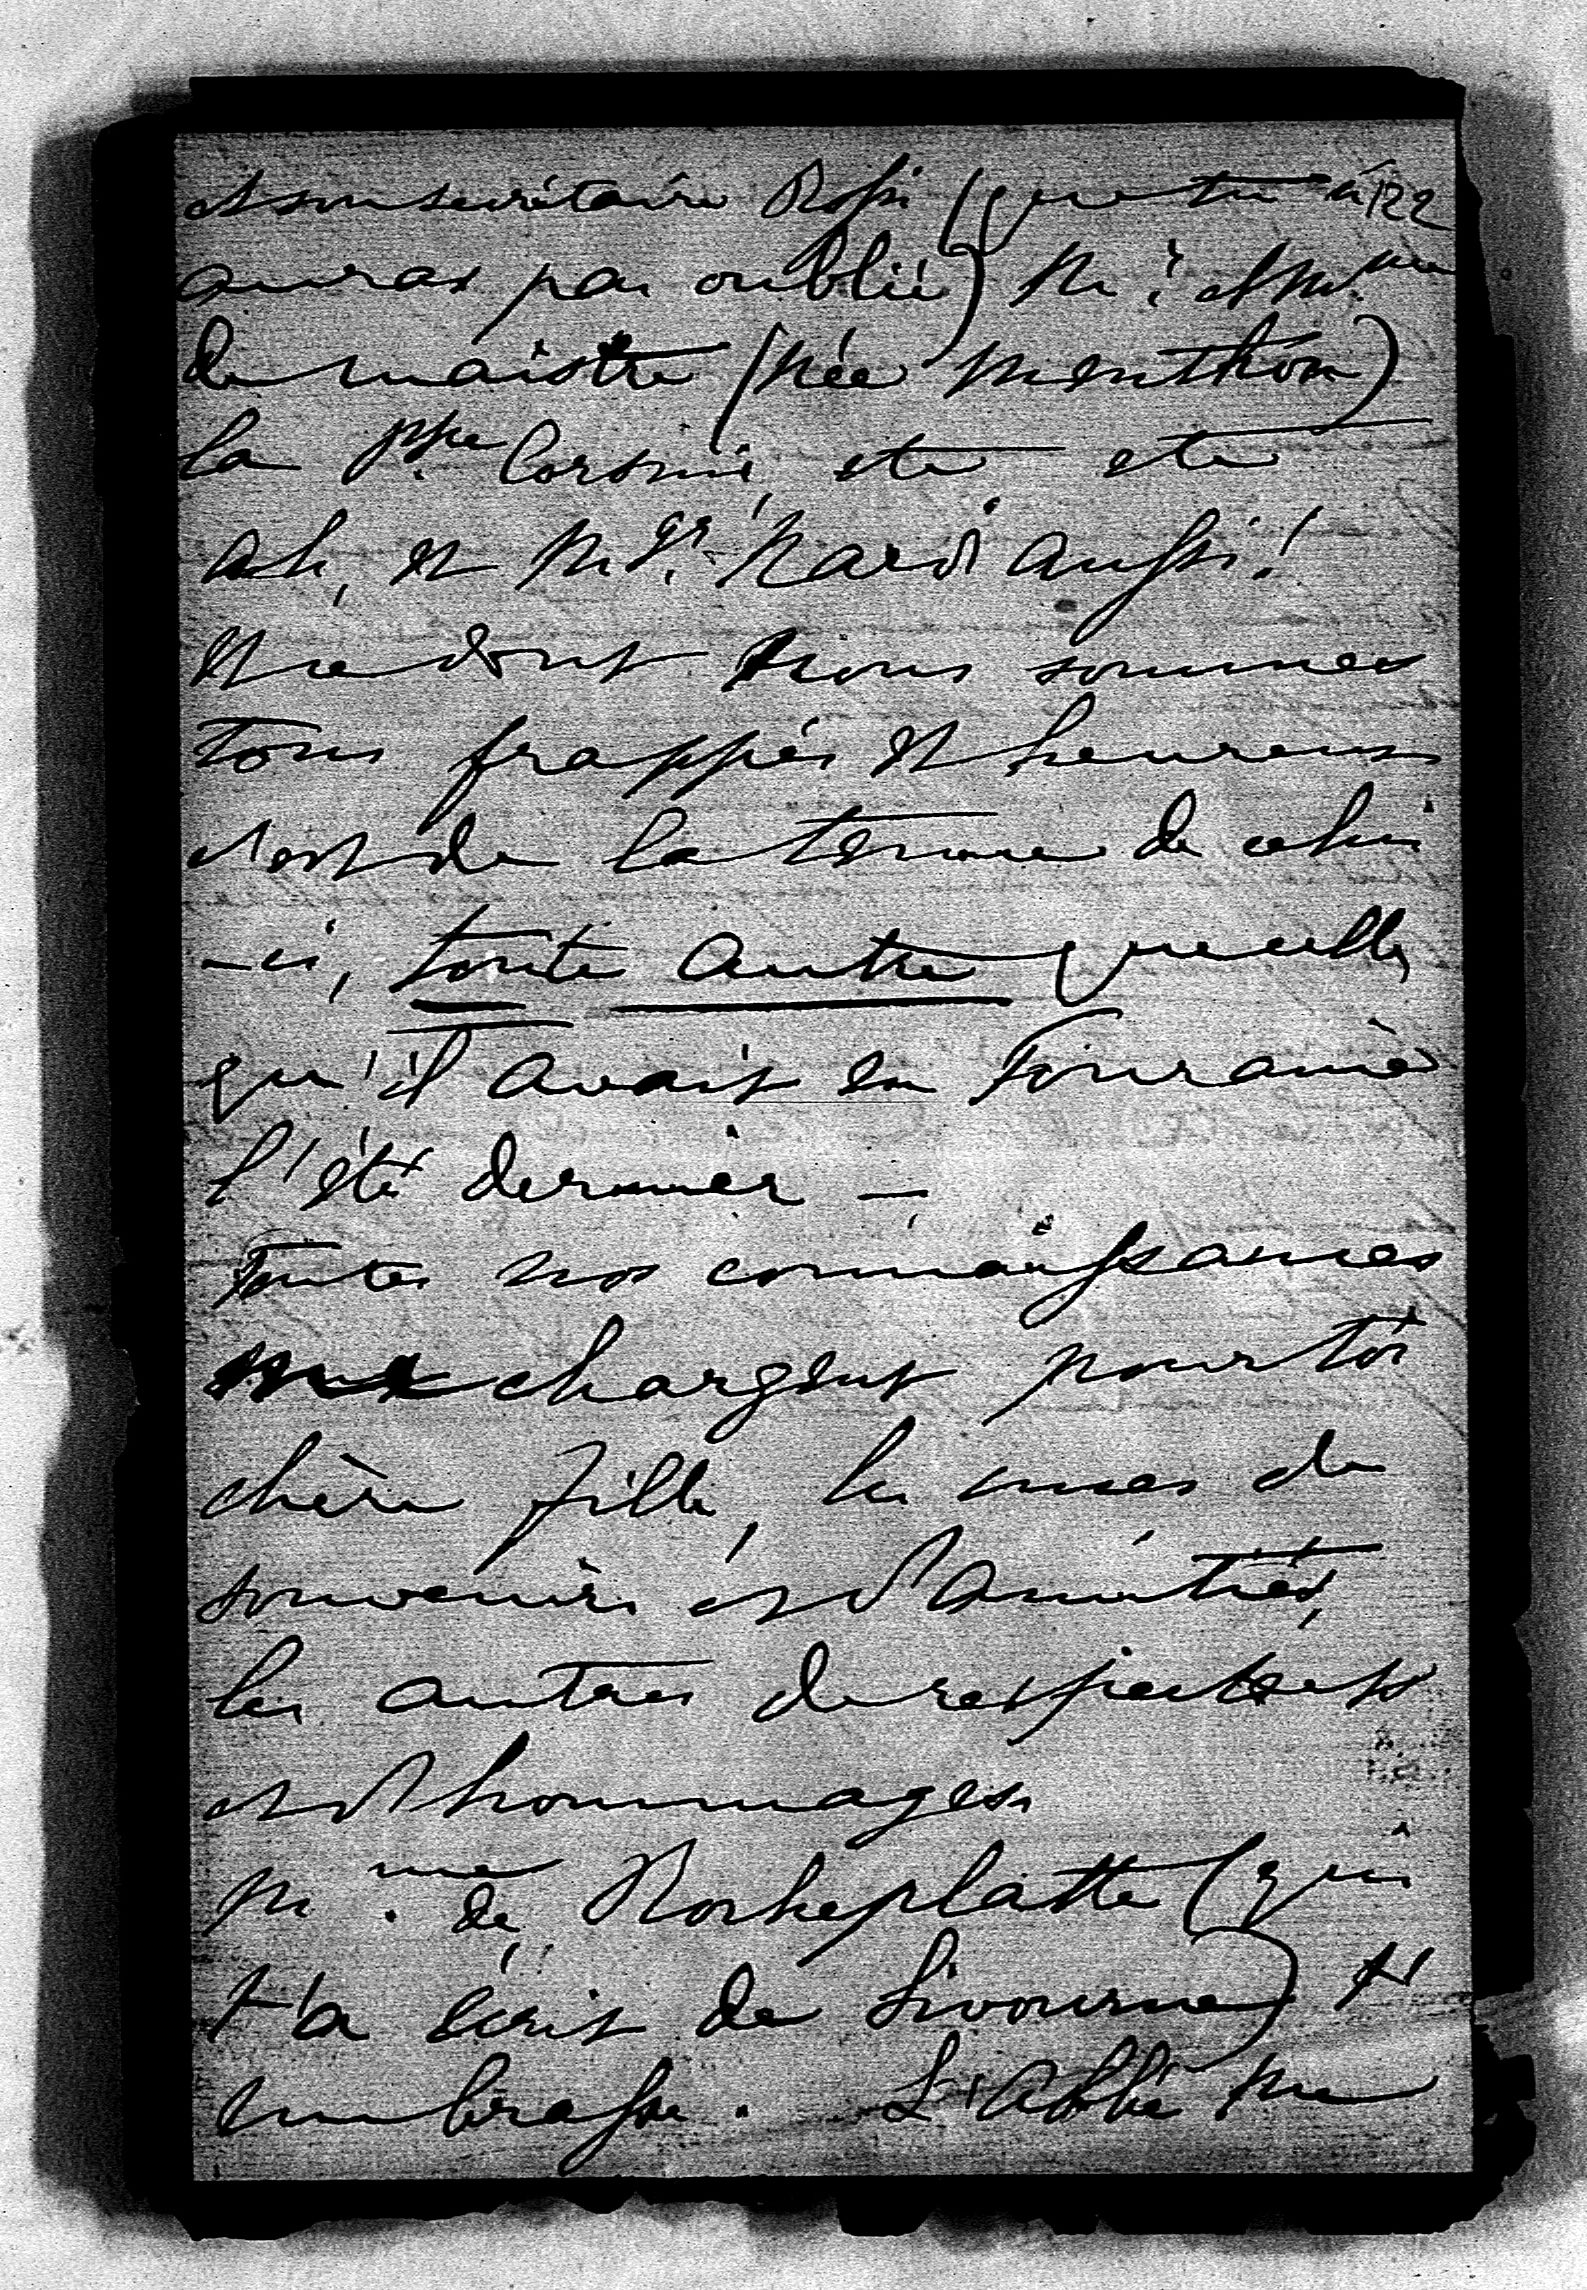 et son secrétaire Rossi (que tu n' 122
auras pas oublié) Mr. et Mme
de Maistre (née Menthon)
la Ppe. Corsini, etc etc
ah, et Mgr. Nardi aussi!
et ce dont nous sommes
tous frappés et heureux
c'est de la tenue de celui
-ci, toute autre que celle
qu'il avait en Touraine
l'été dernier —
Toutes nos connaissances
me chargent pour toi
chère fille, les unes de
souvenirs et d'amitiés,
les autres de respects
et d'hommages
Mme. de Rocheplatte (qui
t'a écrit de Livourne) t'
embrasse. L'Abbé me